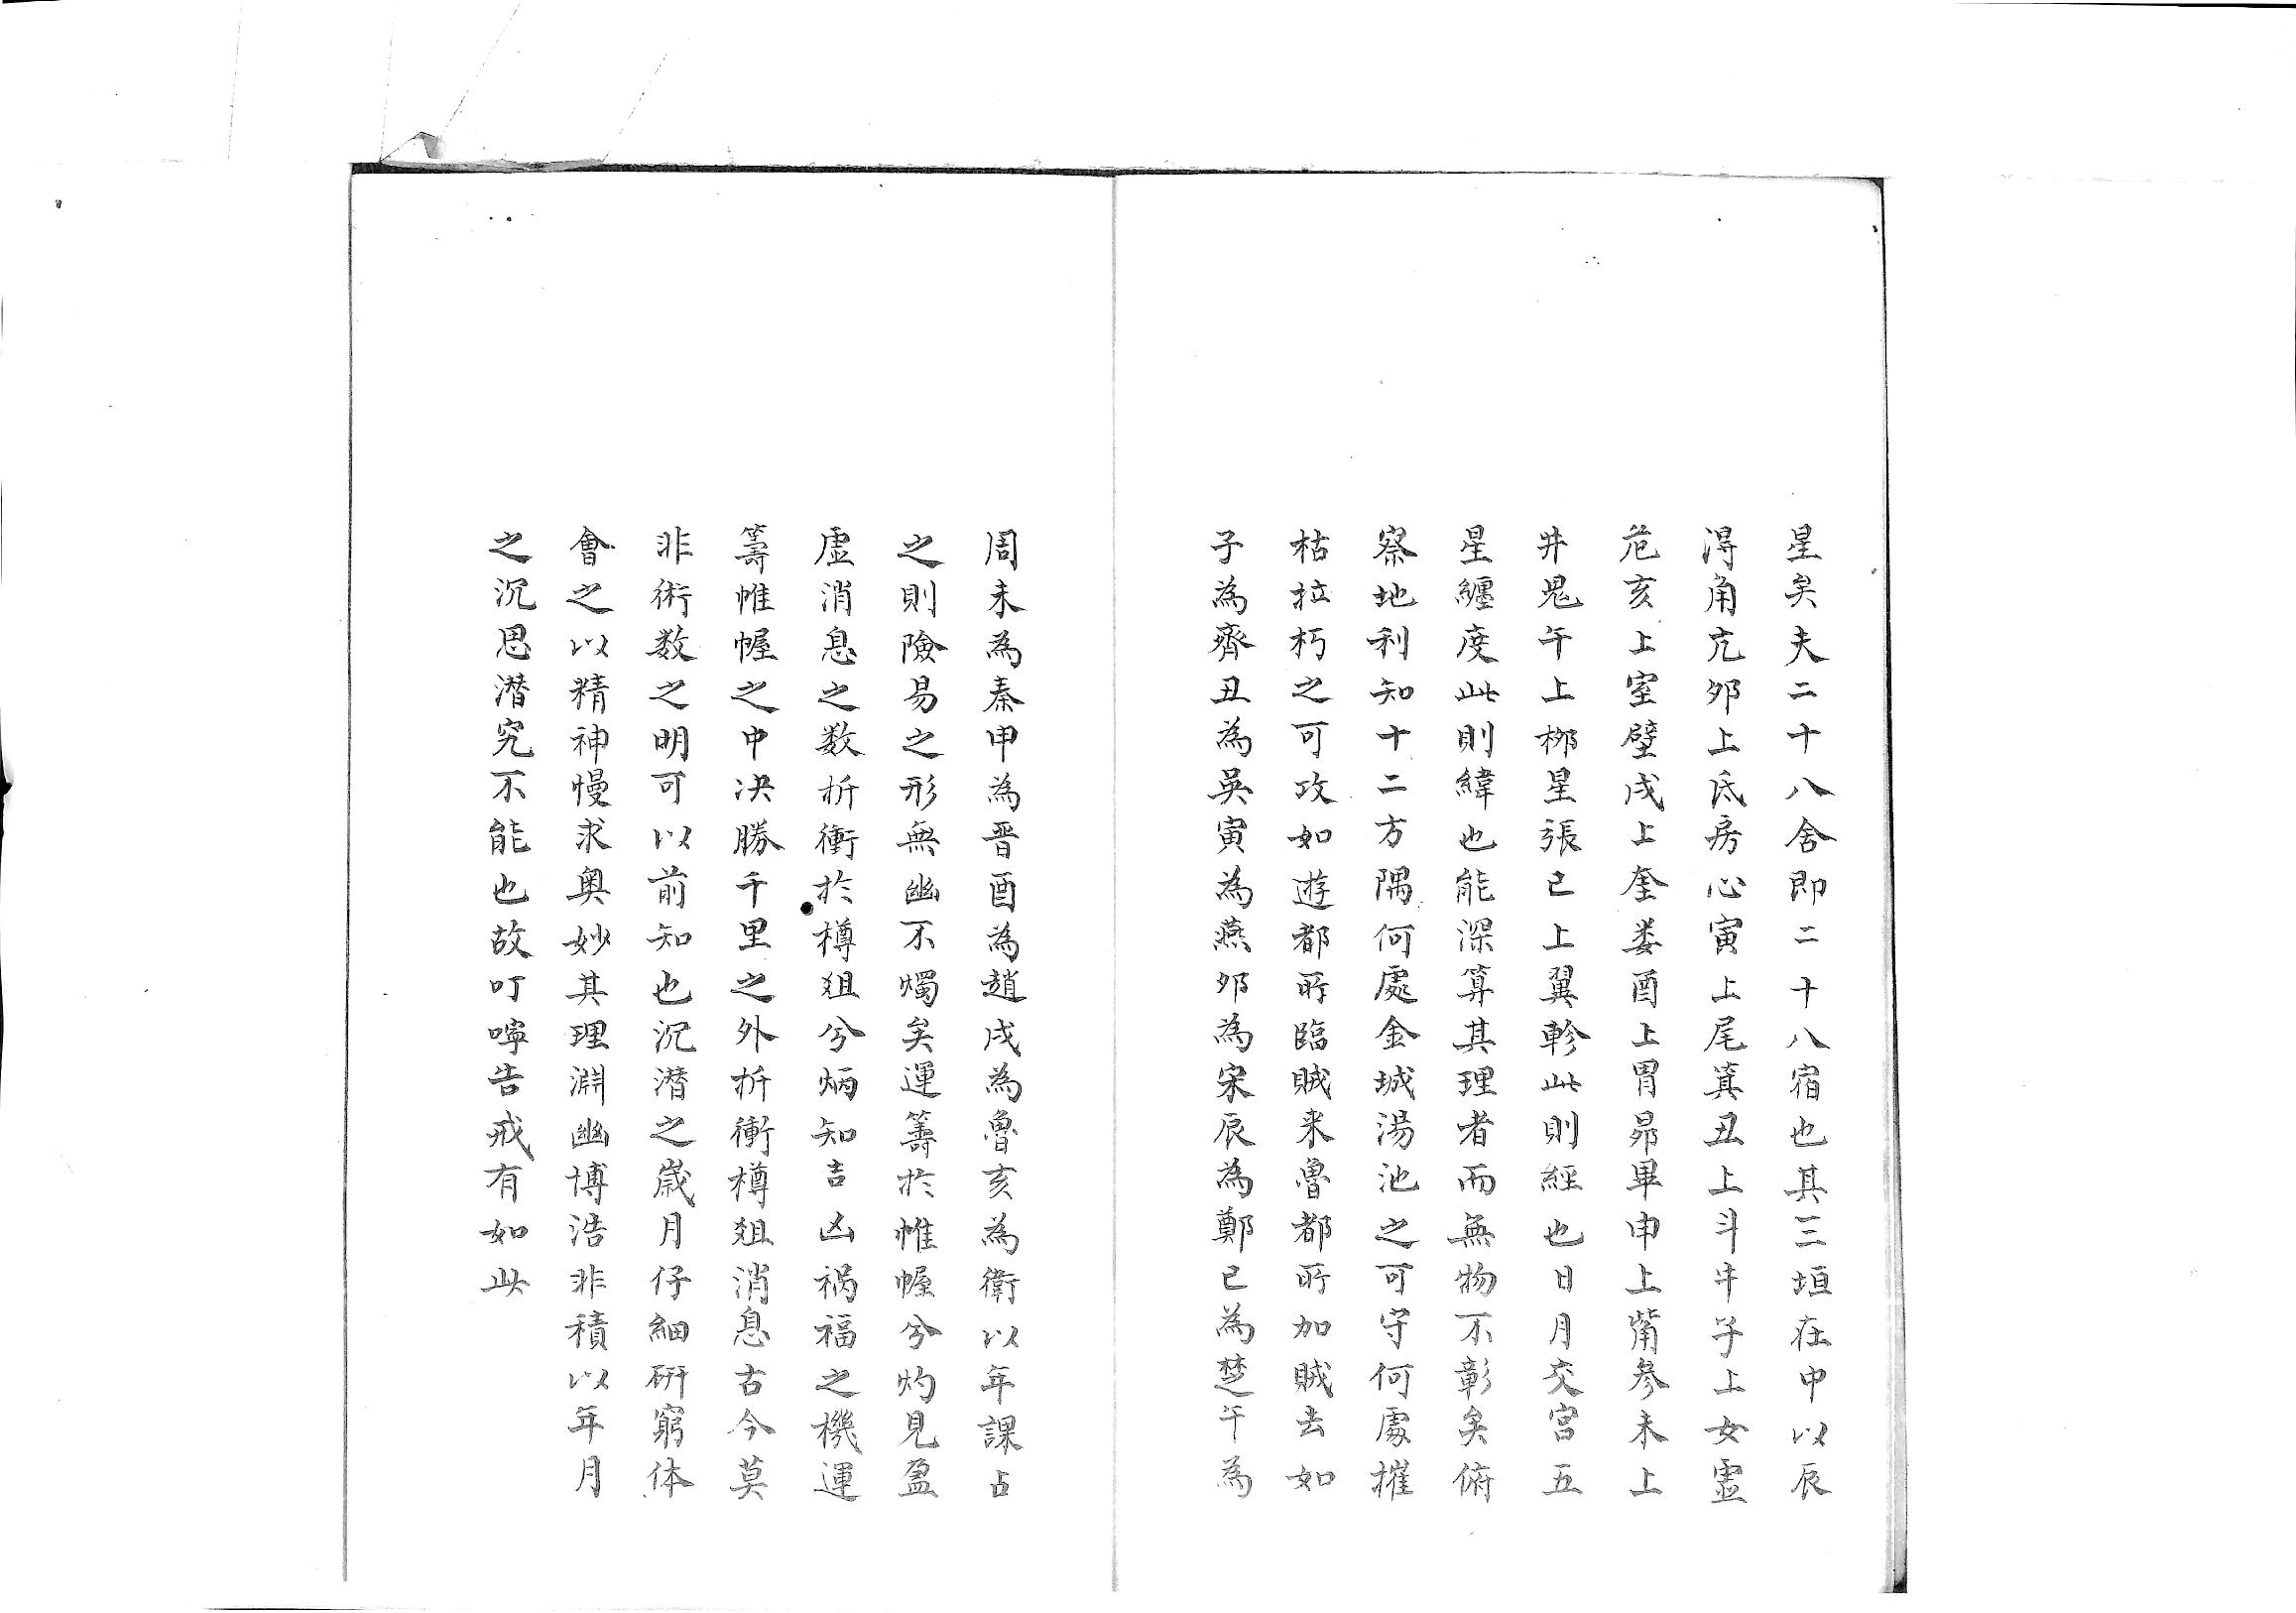 星矣夫二十八舍即二十八宿也其三垣在中以辰
淂角亢夘上氐房心寅上尾箕丑上斗牛子上女虛
危亥上室壁戌上奎娄酉上胃昴畢申上觜參未上
井鬼午上栁星張巳上翼軫此則經也日月交宮五
星纏度此則緯也能深算其理者而無物不彰矣俯
察地利知十二方隅何處金城湯池之可守何處摧
枯拉朽之可攻如遊都所臨賊来魯都所加賊去如
子為齊丑為吳寅為燕夘為宋辰為鄭巳為楚午為
周未為秦申為晋酉為趙戌為魯亥為衛以年課占
之則險易之形無幽不燭矣運籌於帷幄兮灼見盈
虛消息之数折衝於樽爼兮炳知吉凶禍福之機運
籌帷幄之中决勝千里之外折衝樽爼消息古今莫
非術数之明可以前知也沉潜之嵗月仔細研窮体
會之以精神慢求奥妙其理淵幽博浩非積以年月
之沉思潜究不能也故叮嚀告戒有如此